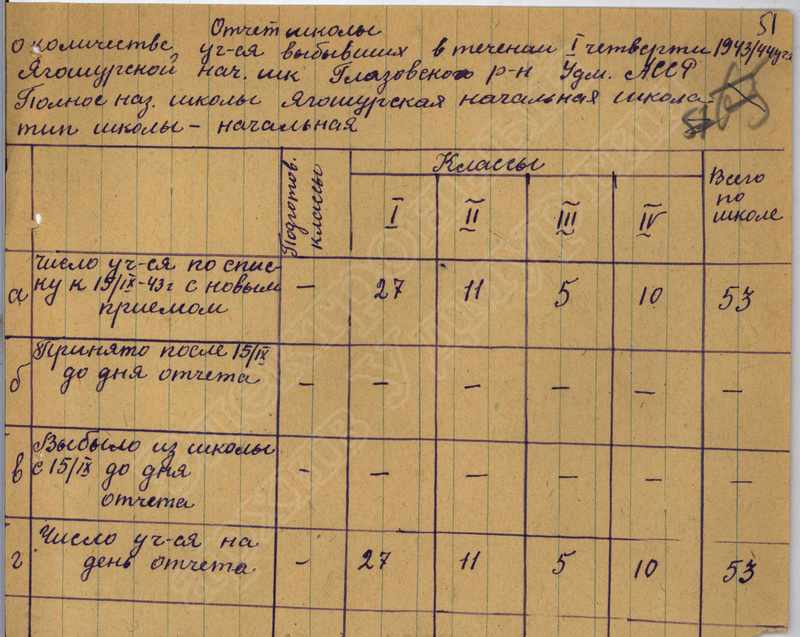 51
Отчет школы
о количестве уч-ся выбывших в течении I четверти 1943/44 уч г
Ягошурской нач. шк Глазовского р-н Удм. АССР
Полное наз. школы Ягошурская начальная школа
тип школы - начальная
Подготов. классы
Классы
Всего по школе
I II III IV
а Число уч-ся по спис-
ку к 15/IX-43г с новым — 27 11 5 10 53
приемом
б Принято после 15/IX
до дня отчета — — — — — —
в Выбыло из школы
с 15/IX до дня — — — — — —
отчета
г Число уч-ся на
день отчета — 27 11 5 10 53